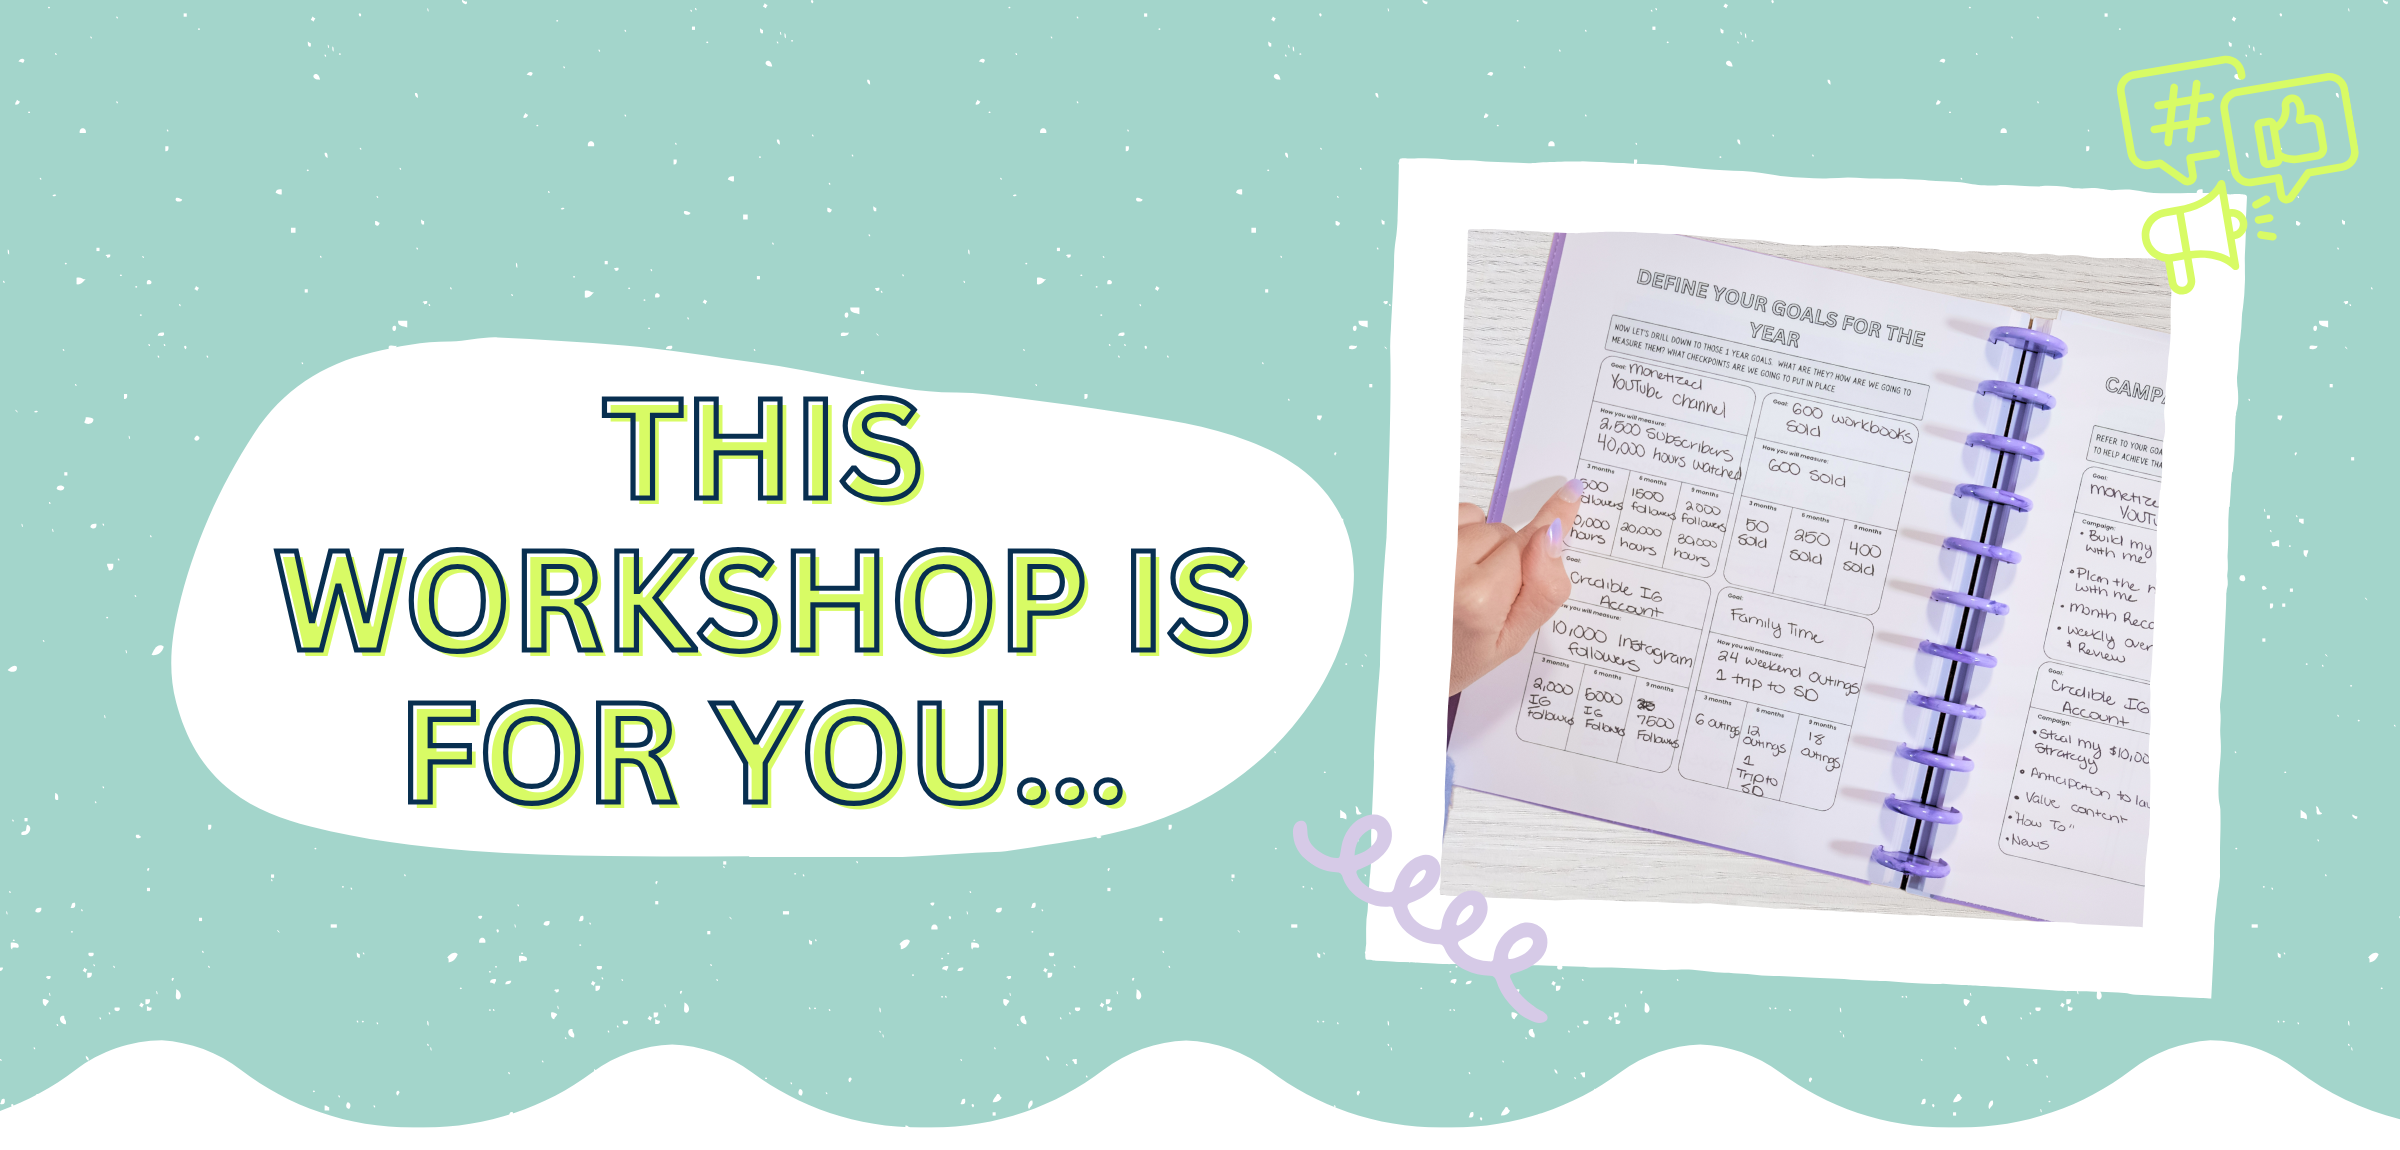 THIS
WORKSHOP IS
FOR YOU...
#
DEFINE YOUR GOALS FOR THE
YEAR
NOW LET'S DRILL DOWN TO THOSE 1 YEAR GOALS. WHAT ARE THEY? HOW ARE WE GOING TO
MEASURE THEM? WHAT CHECKPOINTS ARE WE GOING TO PUT IN PLACE
Goal: Monetized
YouTube channel
How you will measure:
2,500 subscribers
40,000 hours watched
3 months
500
followers
0,000
hours
6 months
1500
followers
20,000
hours
9 months
2000
followers
30,000
hours
Goal: 600 workbooks
sold
How you will measure:
600 sold
3 months
50
sold
6 months
250
sold
9 months
400
sold
Goal:
Credible IG
Account
How you will measure:
10,000 Instagram
followers
3 months
2,000
IG
Followers
6 months
5000
IG
Followers
9 months
7500
Followers
Goal:
Family Time
How you will measure:
24 weekend outings
1 trip to SD
3 months
6 outings
6 months
12
outings
1
Trip to
SD
9 months
18
outings
CAMPA
REFER TO YOUR GOA
TO HELP ACHIEVE THA
Goal:
Monetize
YouTu
Campaign:
• Build my
with me
• Plan the
with me
• Month Reco
• weekly over
& Review
Goal:
Credible IG
Account
Campaign:
• Steal my $10,00
Strategy
• Anticipation to lau
• Value content
• "How To"
• News